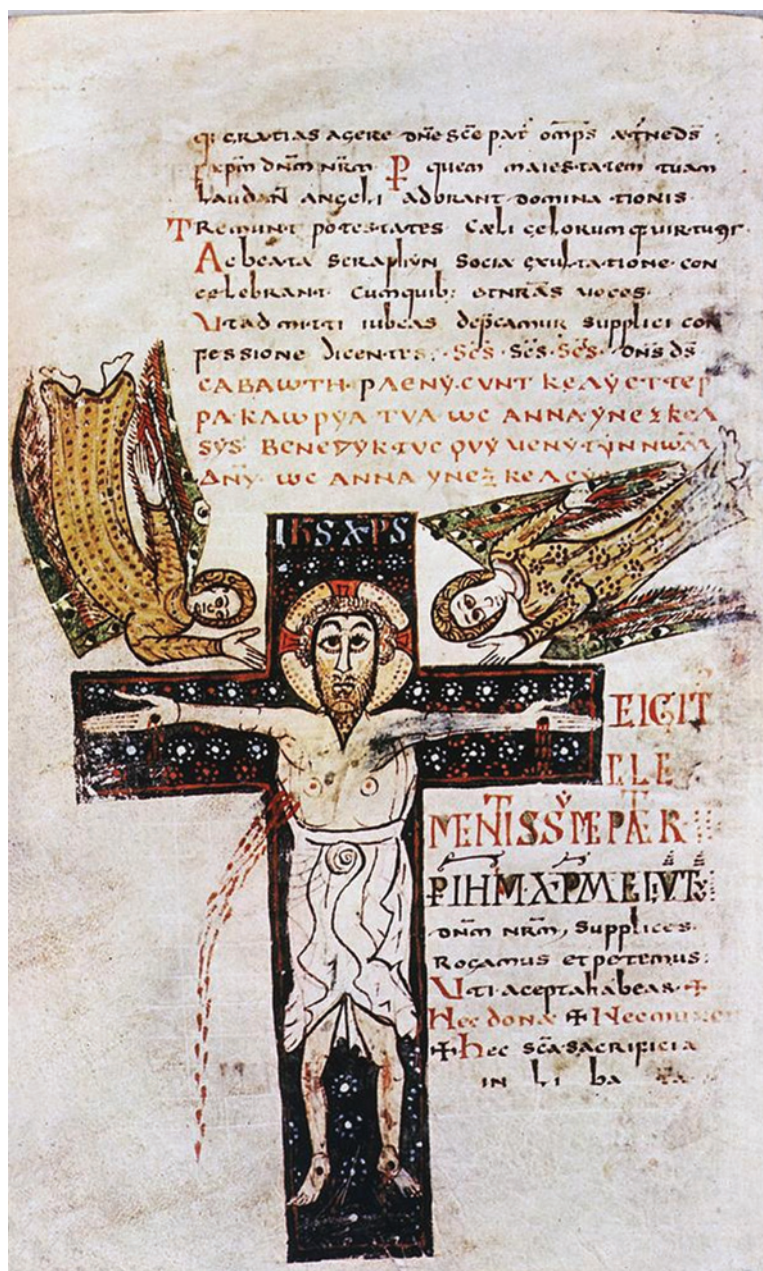 q: GRATIAS AGERE DÑE SC̄E PAT̄ OMP̄S ÆT̄NEDS̄
PXP̄M DN̄M NR̄M P̱ QUEM MAIESTATEM TUAM
LAUDAÑ ANGELI ADORANT DOMINA TIONIS
TREMUNT POTESTATES CÆLI CELORUM Q VIRTUTES
AC BEATA SERAPHYN SOCIA EXULTATIONE CON
CELEBRANT CUMQUIB: ETNR̄AS UOCES
UTADMITTI IUBEAS DEP̄CAMUR SUPPLICI CON
FESSIONE DICENTES. SC̄S SC̄S SC̄S DN̄S DS̄
CABAωTH PLENY CVNT KELY ET TER
RA KLωPYA TVA ωC ANNA YNEΞKEL
SYS BENEDYKTVC QVY VENYT YN NωM
ΔNY ωC ANNA YNEΞKELCY
IHS·XPS
TE IGIT̄
CLE
MENTISSYME PATER
P̱ IHM XPM FILIUT
DN̄M NR̄M, SUPPLICES
ROGAMUS ET PETEMUS:
UTI ACEPTAHABEAS ✠
HEC DONA ✠ HECMUNE
✠ HEC SC̄A SACRIFICIA
IN LI BA TA